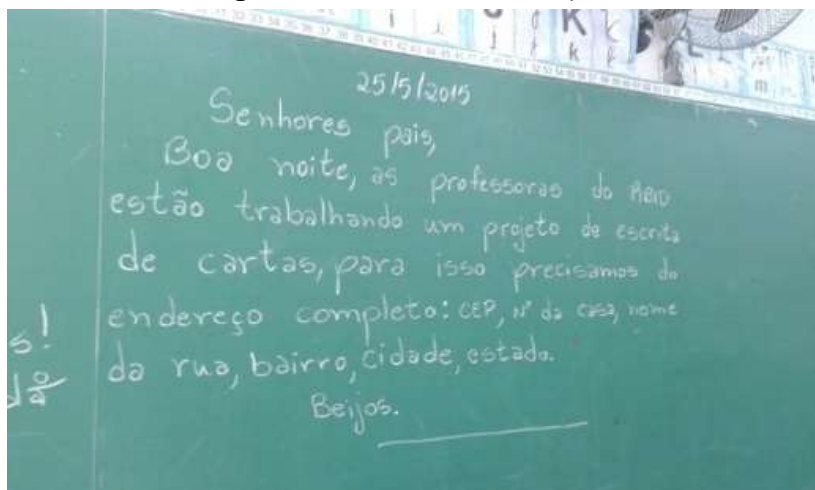 25/5/2015
Senhores pais,
Boa noite, as professoras do PIBID
estão trabalhando um projeto de escrita
de cartas, para isso precisamos do
endereço completo: CEP, Nº da casa, nome
da rua, bairro, cidade, estado.
Beijos.
s!